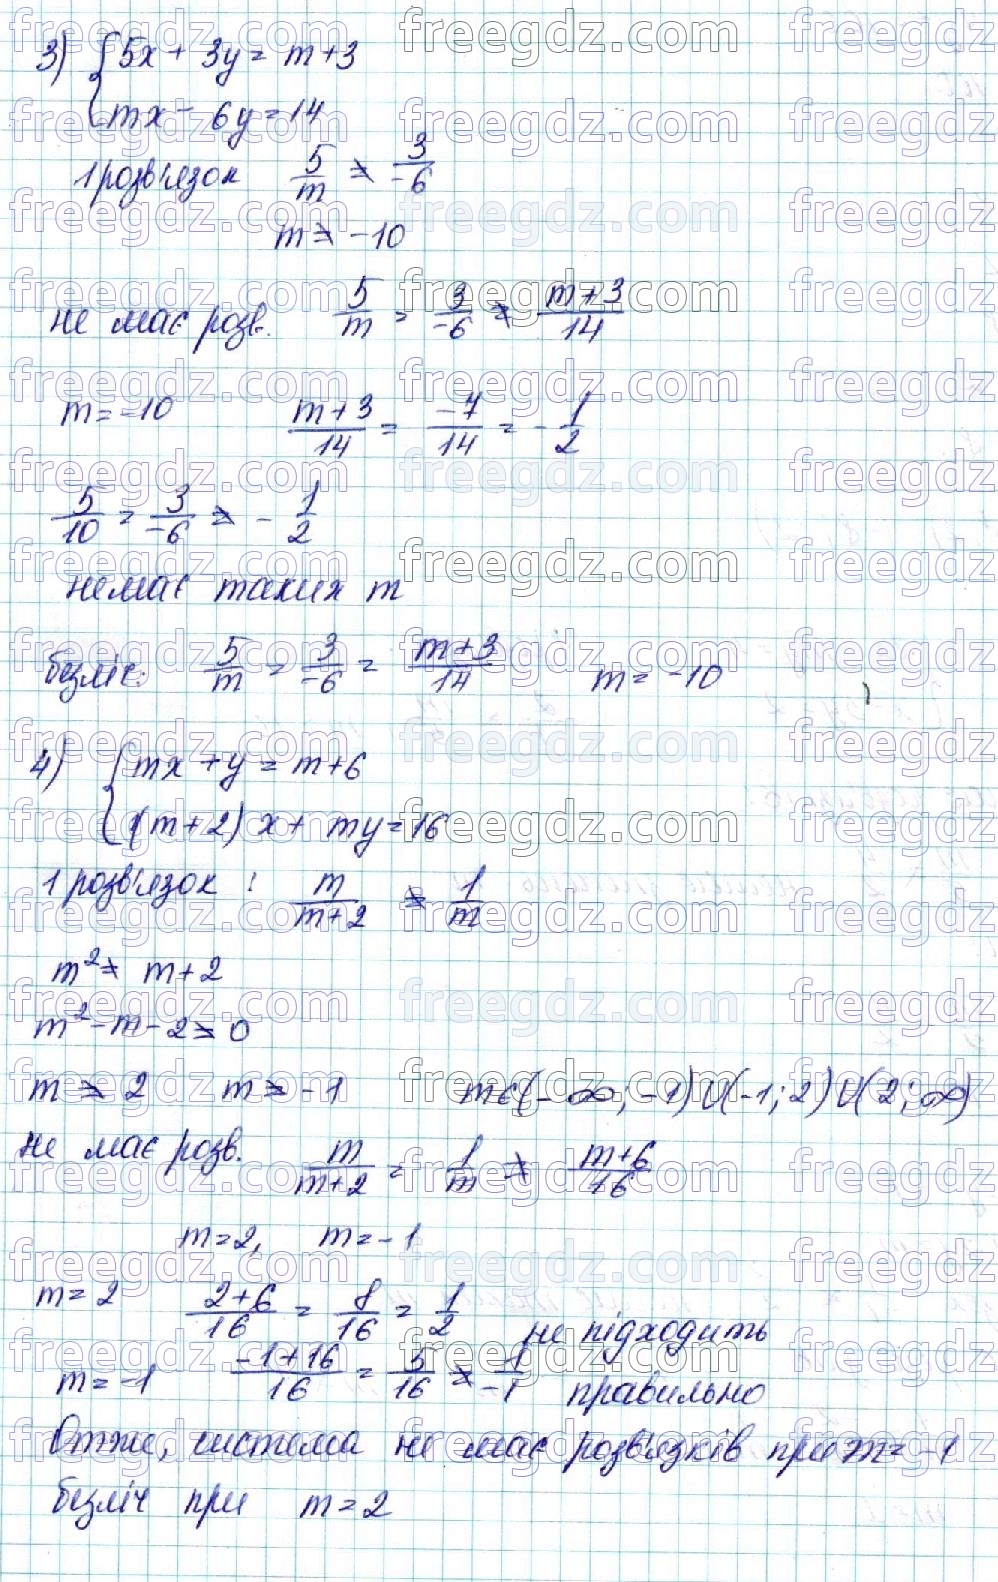 3) { 5x + 3y = m + 3
mx - 6y = 14
1 розв'язок 5/m ≠ 3/-6
m ≠ -10
не має розв. 5/m = 3/-6 ≠ (m+3)/14
m = -10 (m+3)/14 = -7/14 = -1/2
5/10 = 3/-6 ≠ -1/2
немає таких m
безліч: 5/m = 3/-6 = (m+3)/14 m = -10
4) { mx + y = m + 6
(m+2) x + my = 16
1 розв'язок : m/(m+2) ≠ 1/m
m² ≠ m + 2
m² - m - 2 ≠ 0
m ≠ 2 m ≠ -1 m ∈ (-∞; -1) U (-1; 2) U (2; ∞)
не має розв. m/(m+2) = 1/m ≠ (m+6)/16
m = 2, m = -1
m = 2 (2+6)/16 = 8/16 = 1/2 не підходить
m = -1 (-1+16)/16 = 5/16 ≠ 1/-1 правильно
Отже, система не має розв'язків при m = -1
безліч при m = 2
freegdz.com